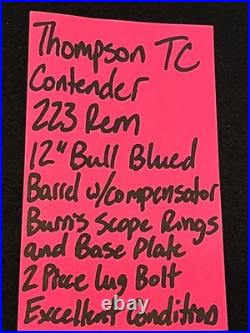 Thompson TC
Contender
223 Rem
12" Bull Blued
Barrel w/compensator
Burris Scope Rings
and Base Plate
2 Piece Lug Bolt
Excellent Condition